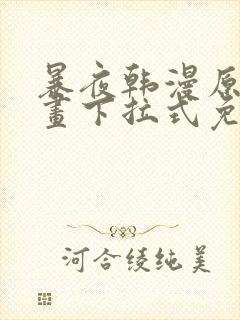 暴夜韩漫原
畫下拉式免
河合绫纯美